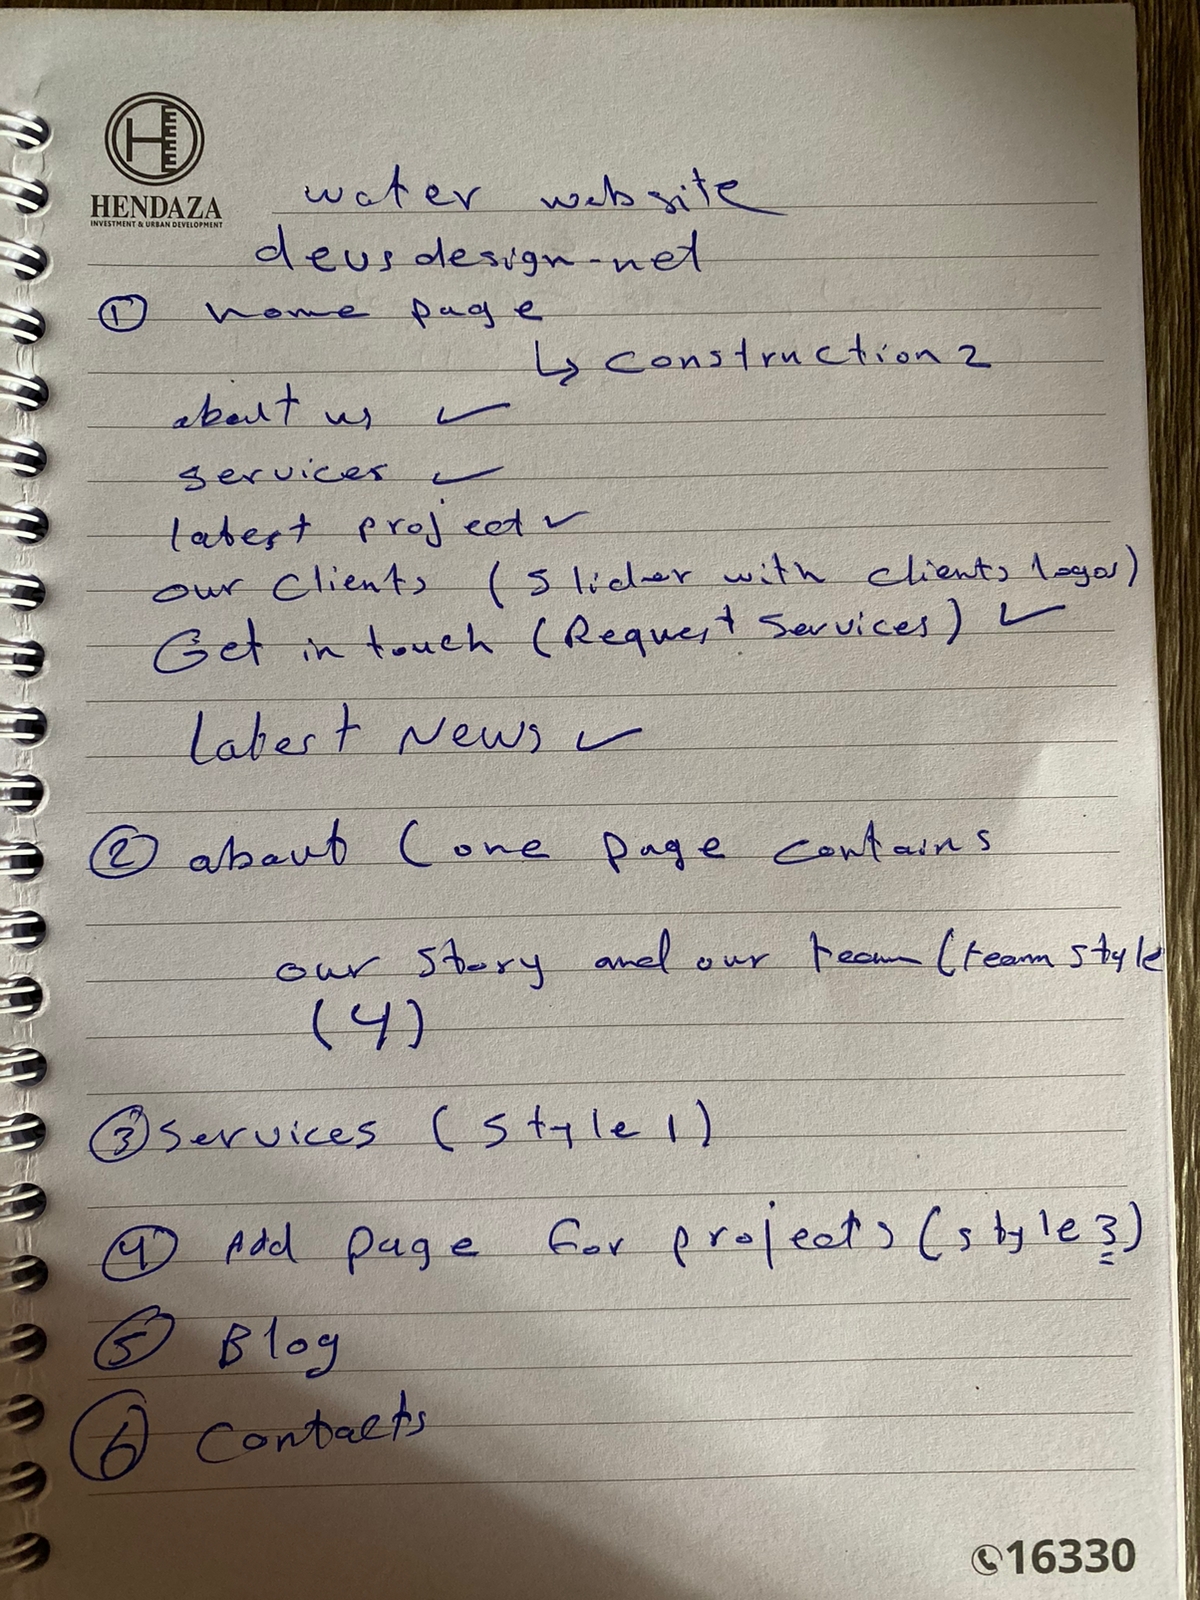 HENDAZA
INVESTMENT & URBAN DEVELOPMENT
water website
deusdesign-net
① home page
↳ construction 2
about us ✓
services ✓
latest project ✓
our clients (slider with clients logos)
Get in touch (Request Services) ✓
Latest News ✓
② about (one page contains
our story and our team (team style
(4)
③ services (style 1)
④ Add page for projects (style 3)
⑤ Blog
⑥ Contacts
16330